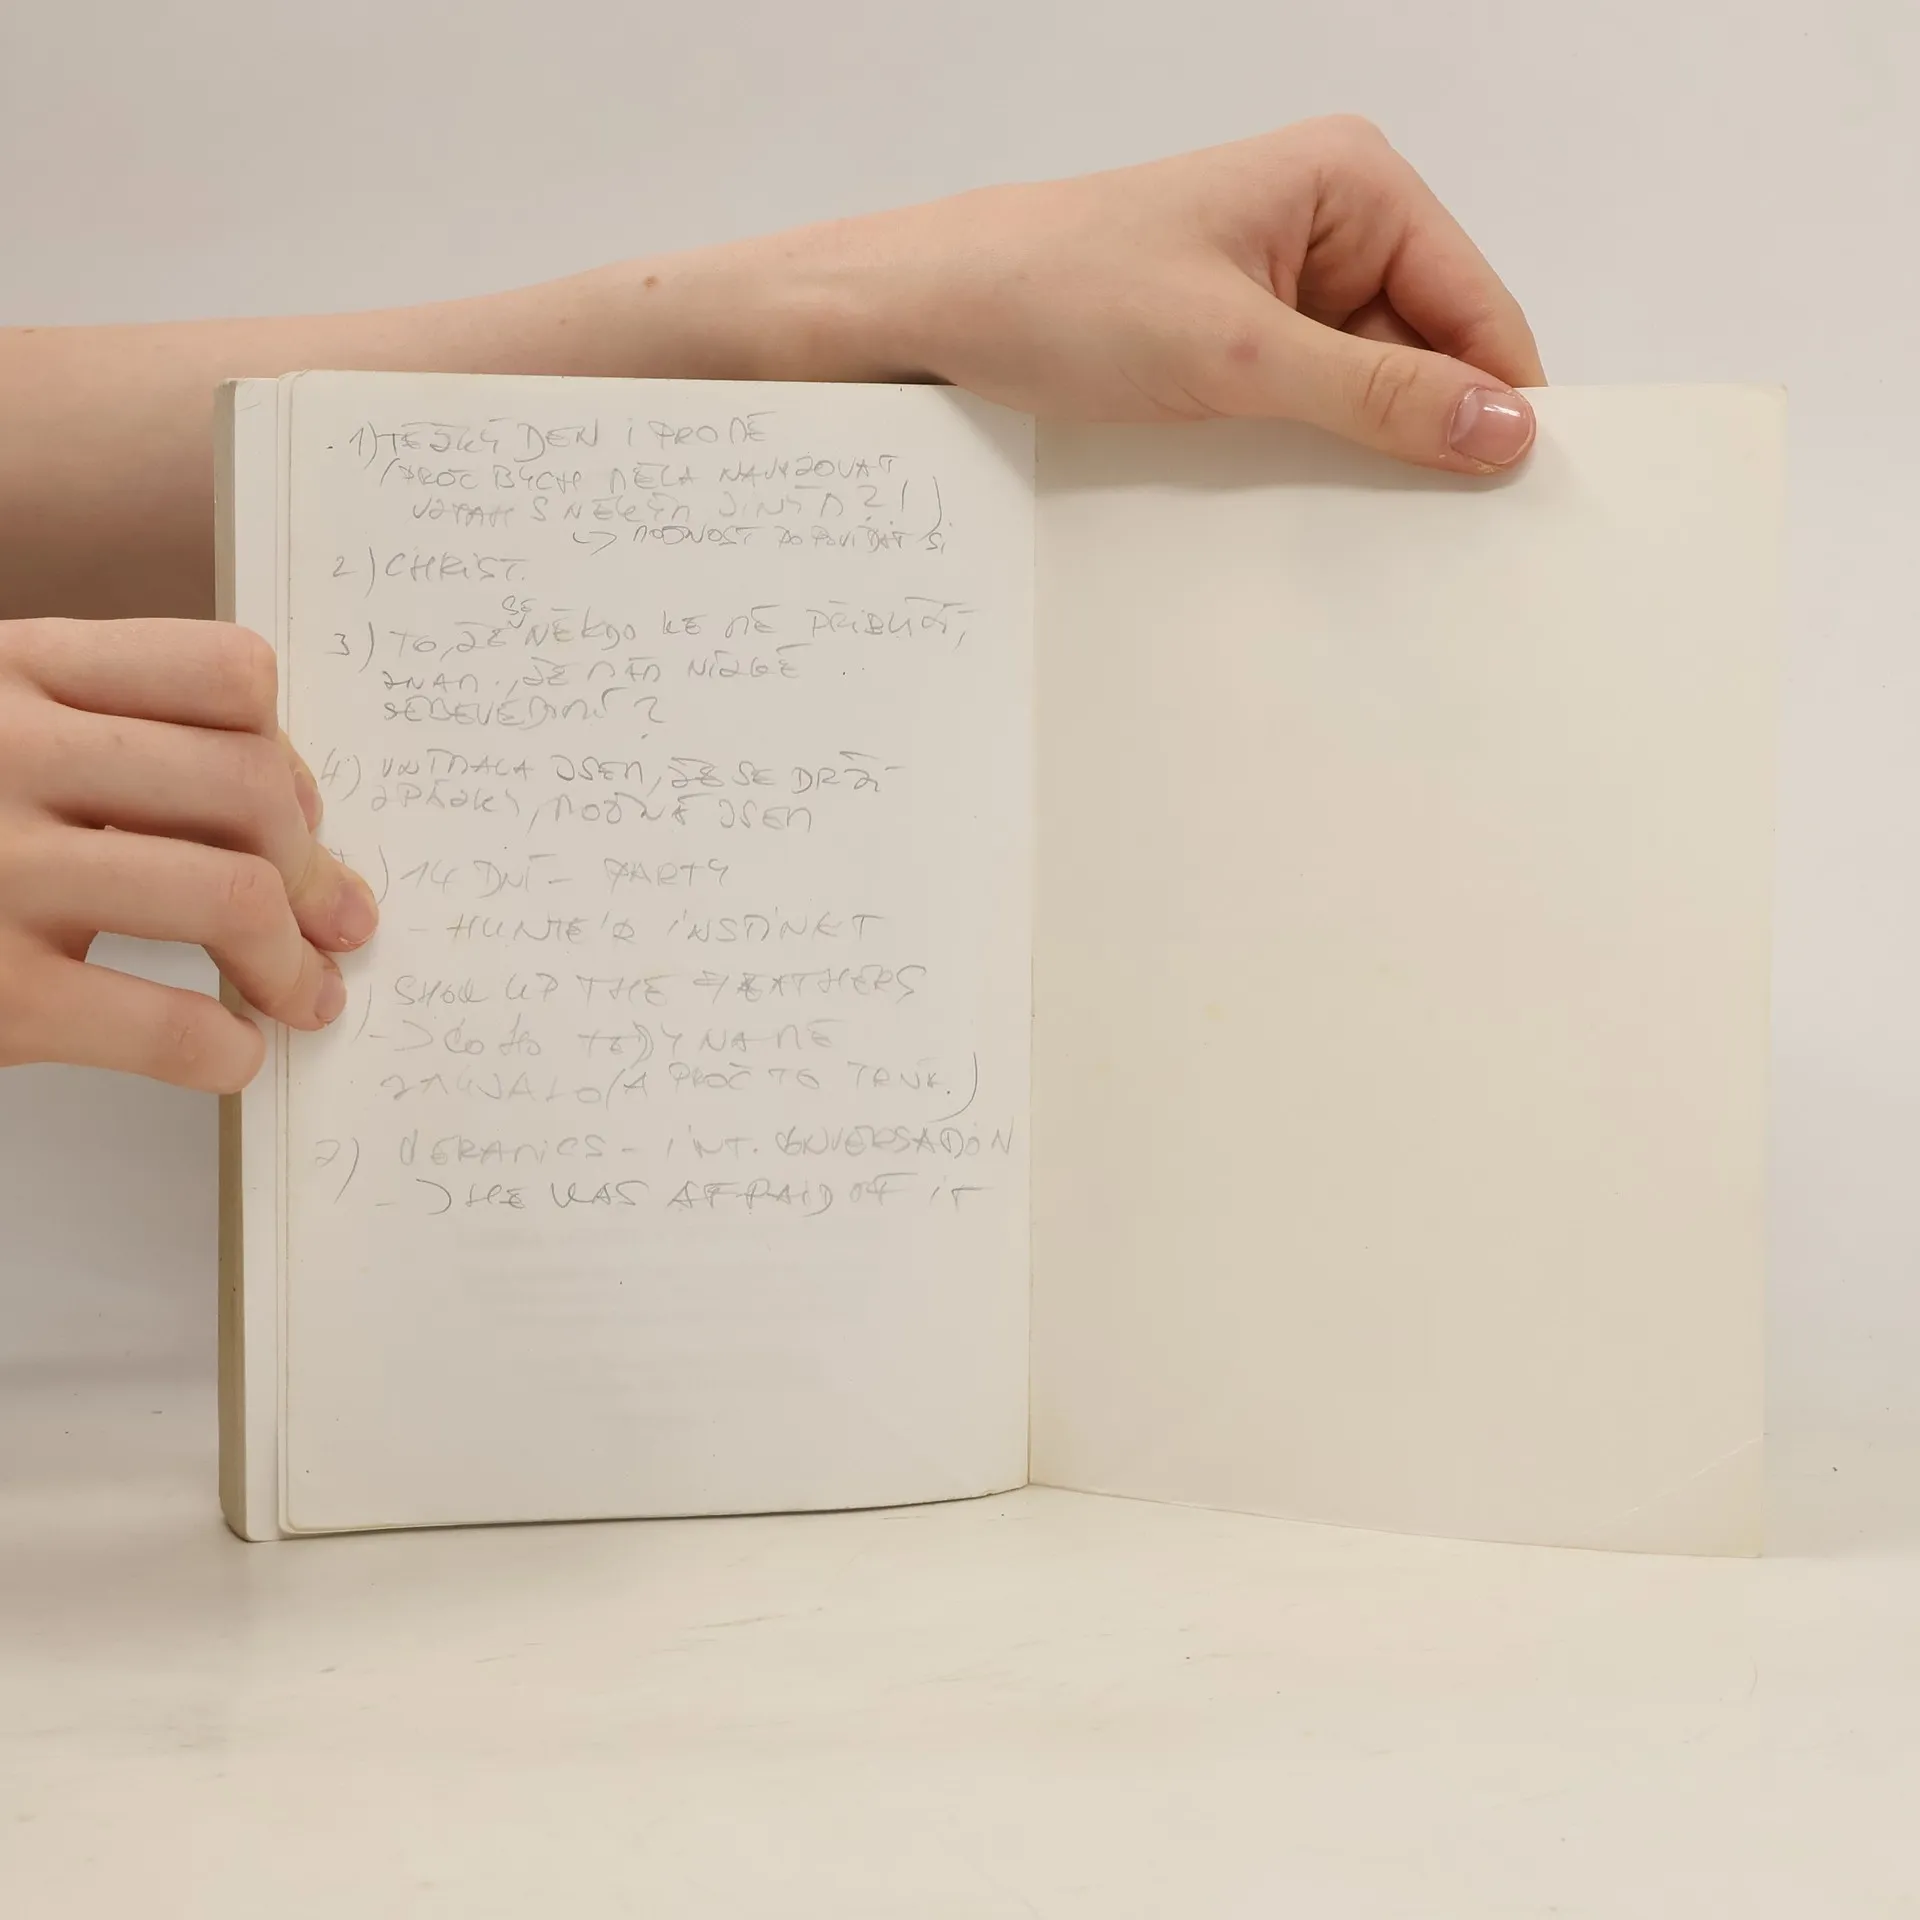 1) TĚŽKÝ DEN I PRO MĚ
(PROČ BYCH MĚLA NAVAZOVAT
VZTAH S NĚKÝM JINÝM?!)
↳ MOŽNOST POPOVÍDAT SI
2) CHRIST.
3) TO, ŽE SE NĚKDO KE MĚ PŘIBLÍŽÍ,
ZNAM., ŽE MÁM NÍZKÉ
SEBEVĚDOMÍ?
4) VNÍMALA JSEM, ŽE SE DRŽÍ
ZPÁTKY, MOŽNÁ JSEM
) 14 DNÍ - PARTY
- HUNTER INSTINKT
) SHOW UP THE FEATHERS
-> CO HO TEDY NA MĚ
ZAUJALO (A PROČ TO TRVÁ.)
7) CERAMICS - INT. CONVERSATION
-> HE WAS AFRAID OF IT